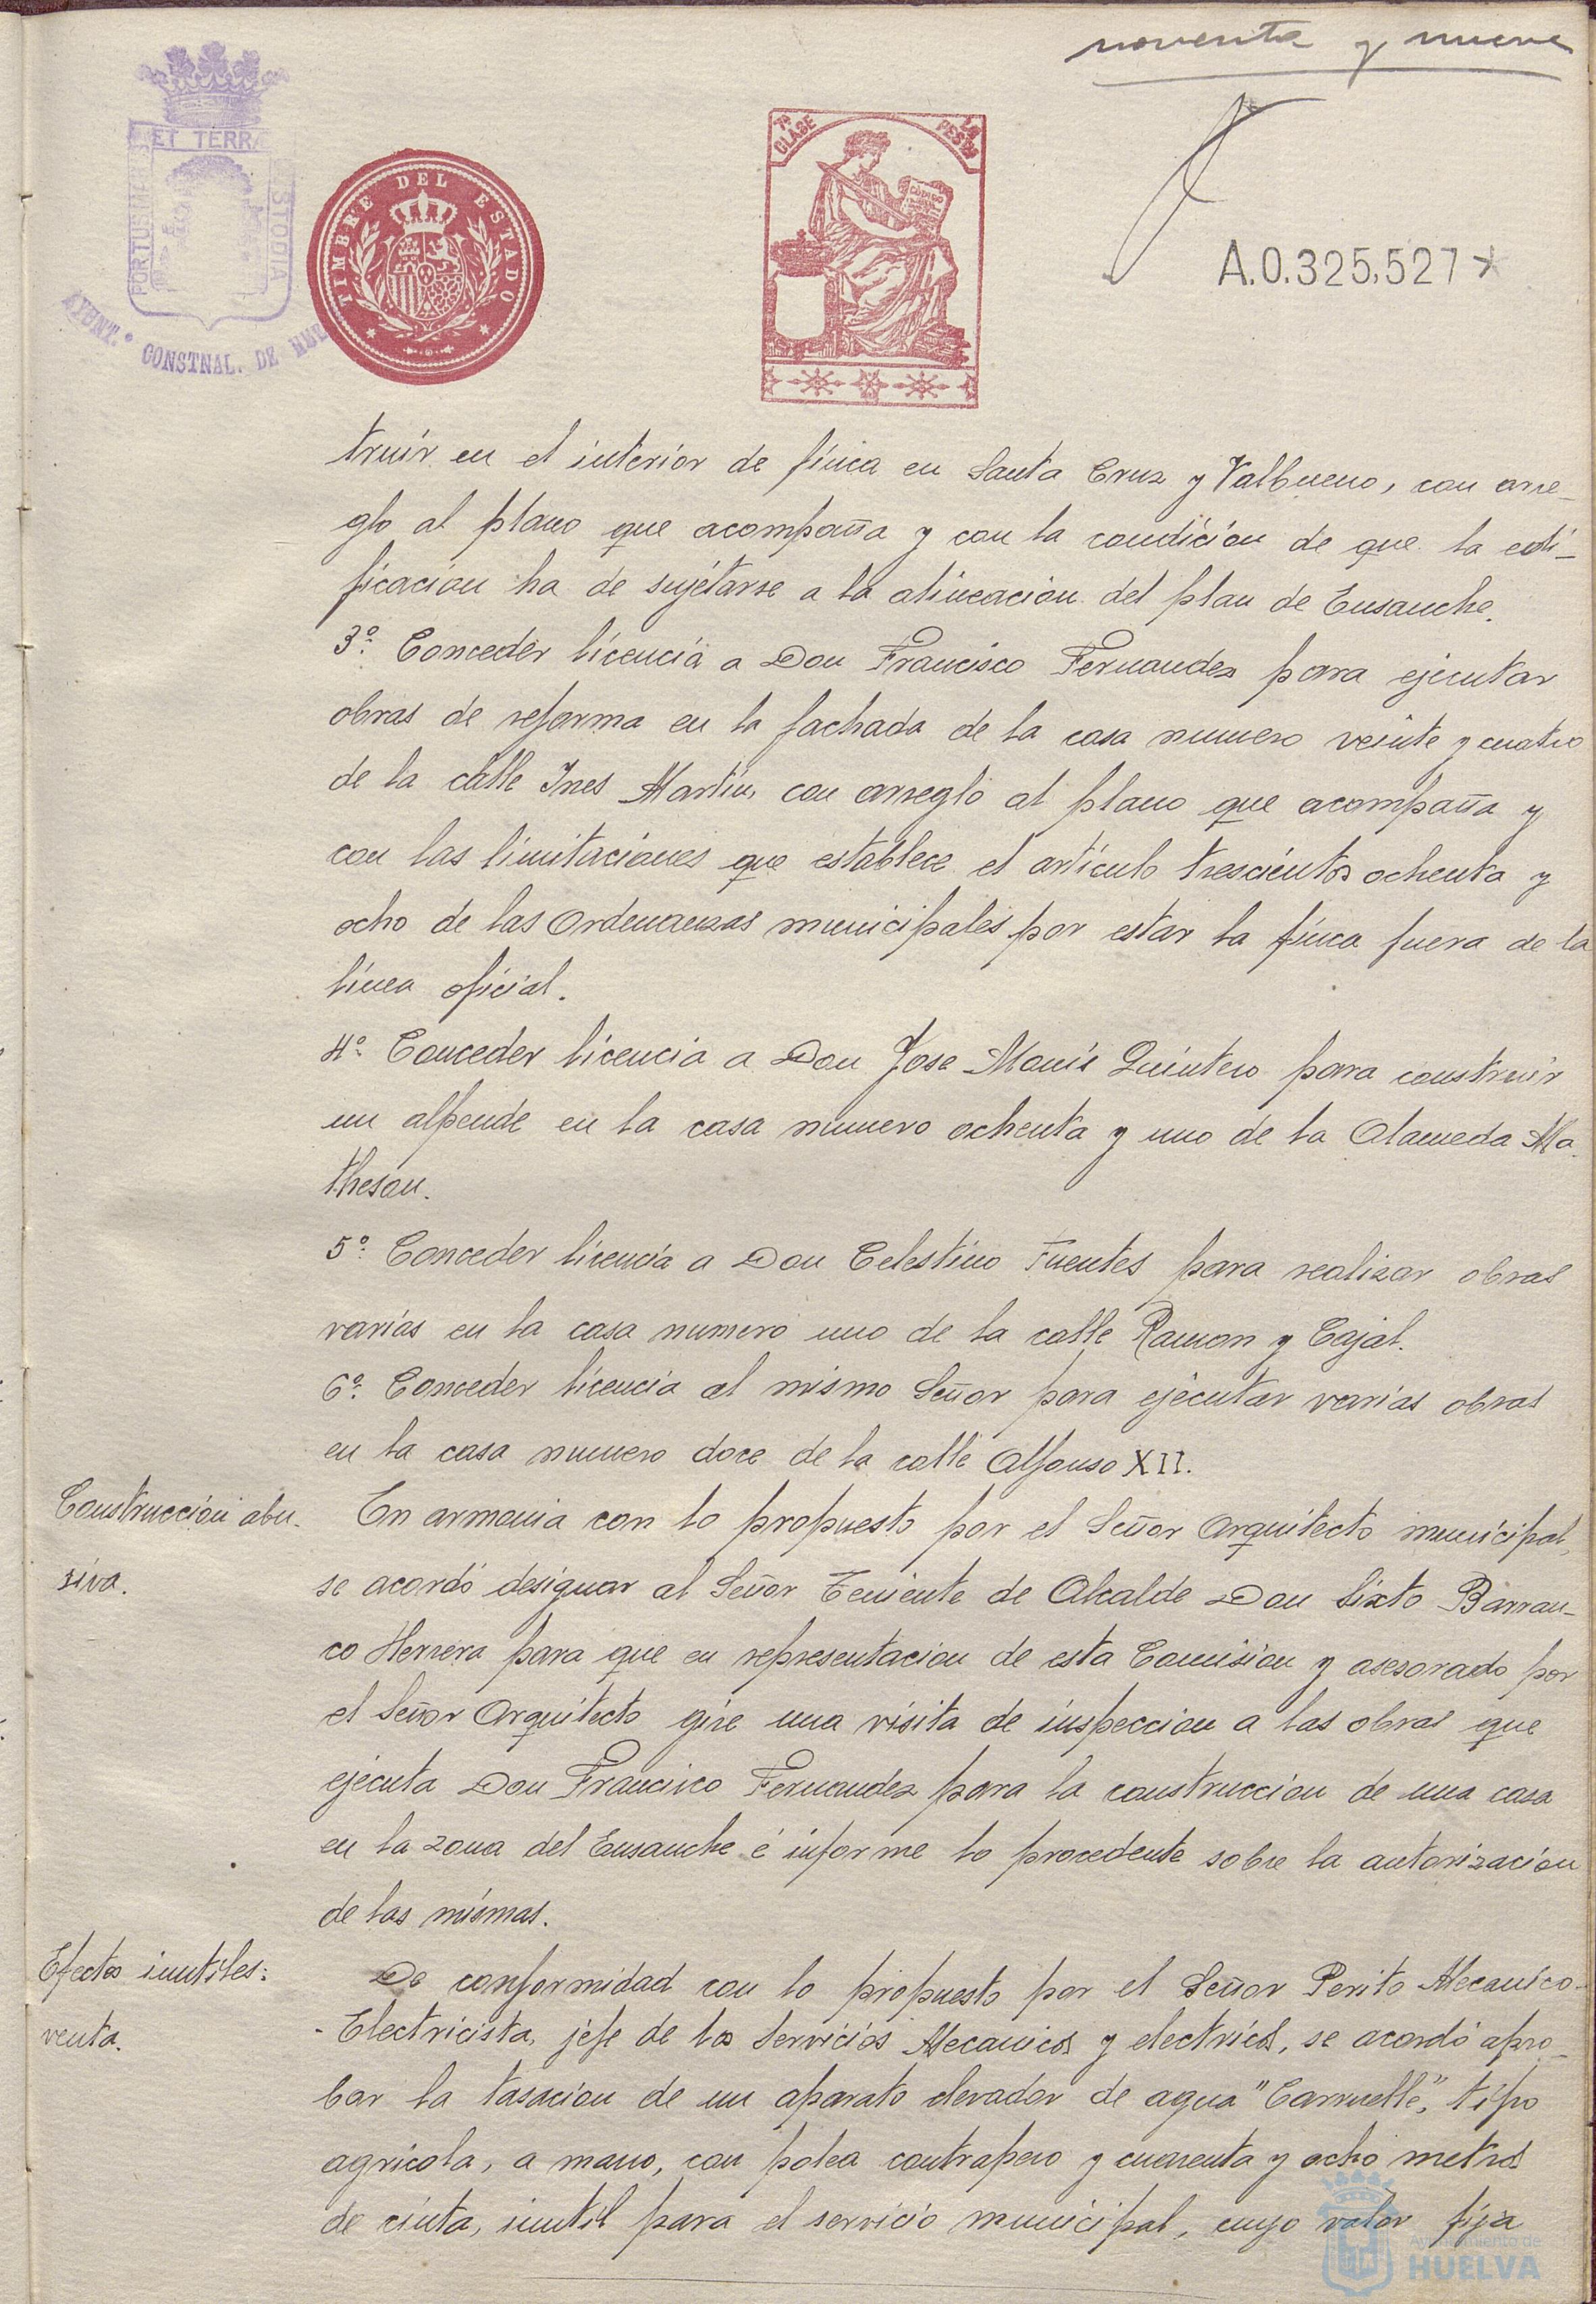 noventa y nueve
ET TERRÆ
PORTUS MARIS
CUSTODIA
AYUNT.º CONSTNAL. DE HUE
TIMBRE DEL ESTADO
7ª CLASE
PESETA
A.0.325,527
truir en el interior de finca en Santa Cruz y Valbueno, con arre-
glo al plano que acompaña y con la condición de que la edi-
ficación ha de sujetarse a la alineación del plan de Ensanche.
3º Conceder licencia a Don Francisco Fernandez para ejecutar
obras de reforma en la fachada de la casa numero veinte y cuatro
de la calle Ines Martin, con arreglo al plano que acompaña y
con las limitaciones que establece el artículo trescientos ochenta y
ocho de las Ordenanzas municipales por estar la finca fuera de la
línea oficial.
4º Conceder licencia a Don Jose Maria Quintero para construir
un alpende en la casa numero ochenta y uno de la Alameda Ma
theson.
5º Conceder licencia a Don Celestino Fuentes para realizar obras
varias en la casa numero uno de la calle Ramon y Cajal.
6º Conceder licencia al mismo Señor para ejecutar varias obras
en la casa numero doce de la calle Alfonso XII.
Construcción abu-
siva.
En armonia con lo propuesto por el Señor Arquitecto municipal,
se acordó designar al Señor Teniente de Alcalde Don Sixto Barran-
co Herrera para que en representacion de esta Comision y asesorado por
el Señor Arquitecto gire una visita de inspeccion a las obras que
ejecuta Don Francisco Fernandez para la construccion de una casa
en la zona del Ensanche é informe lo procedente sobre la autorizacion
de las mismas.
Efectos inutiles:
venta.
De conformidad con lo propuesto por el Señor Perito Mecanico-
-Electricista, jefe de los Servicios Mecanicos y electricos, se acordó apro-
bar la tasacion de un aparato elevador de agua "Carruelle", tipo
agricola, a mano, con polea contrapeso y cuarenta y ocho metros
de cinta, inutil para el servicio municipal, cuyo valor fija
Ayuntamiento de
HUELVA